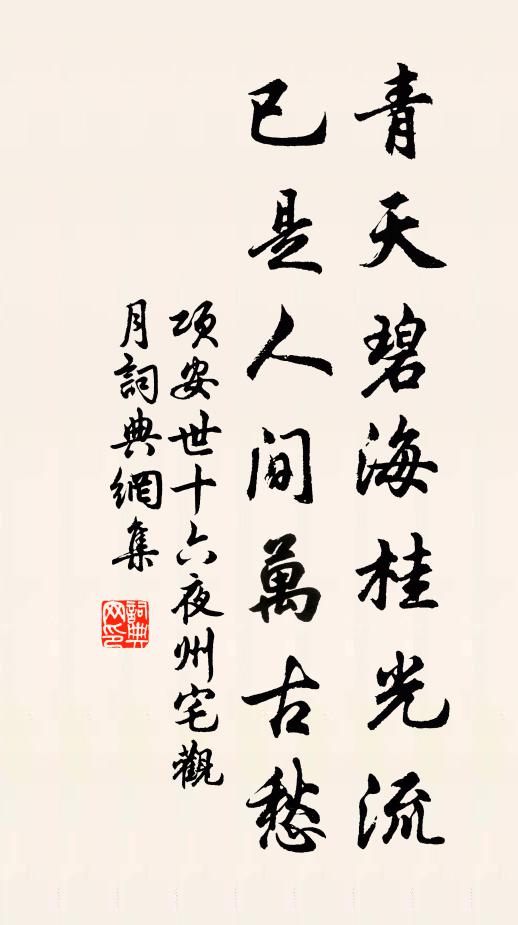 青天碧海桂光流
已是人间萬古愁
项安世十六夜州宅觀
月詞典網集
詞典
网印